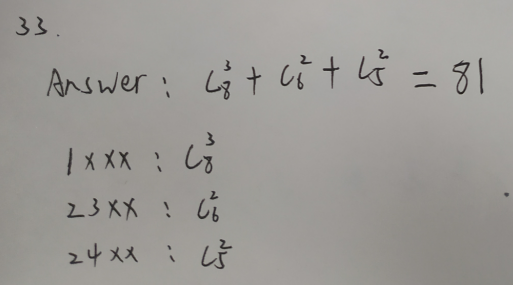 33.
Answer : C₈³ + C₆² + C₅² = 81
1××× : C₈³
23×× : C₆²
24×× : C₅²